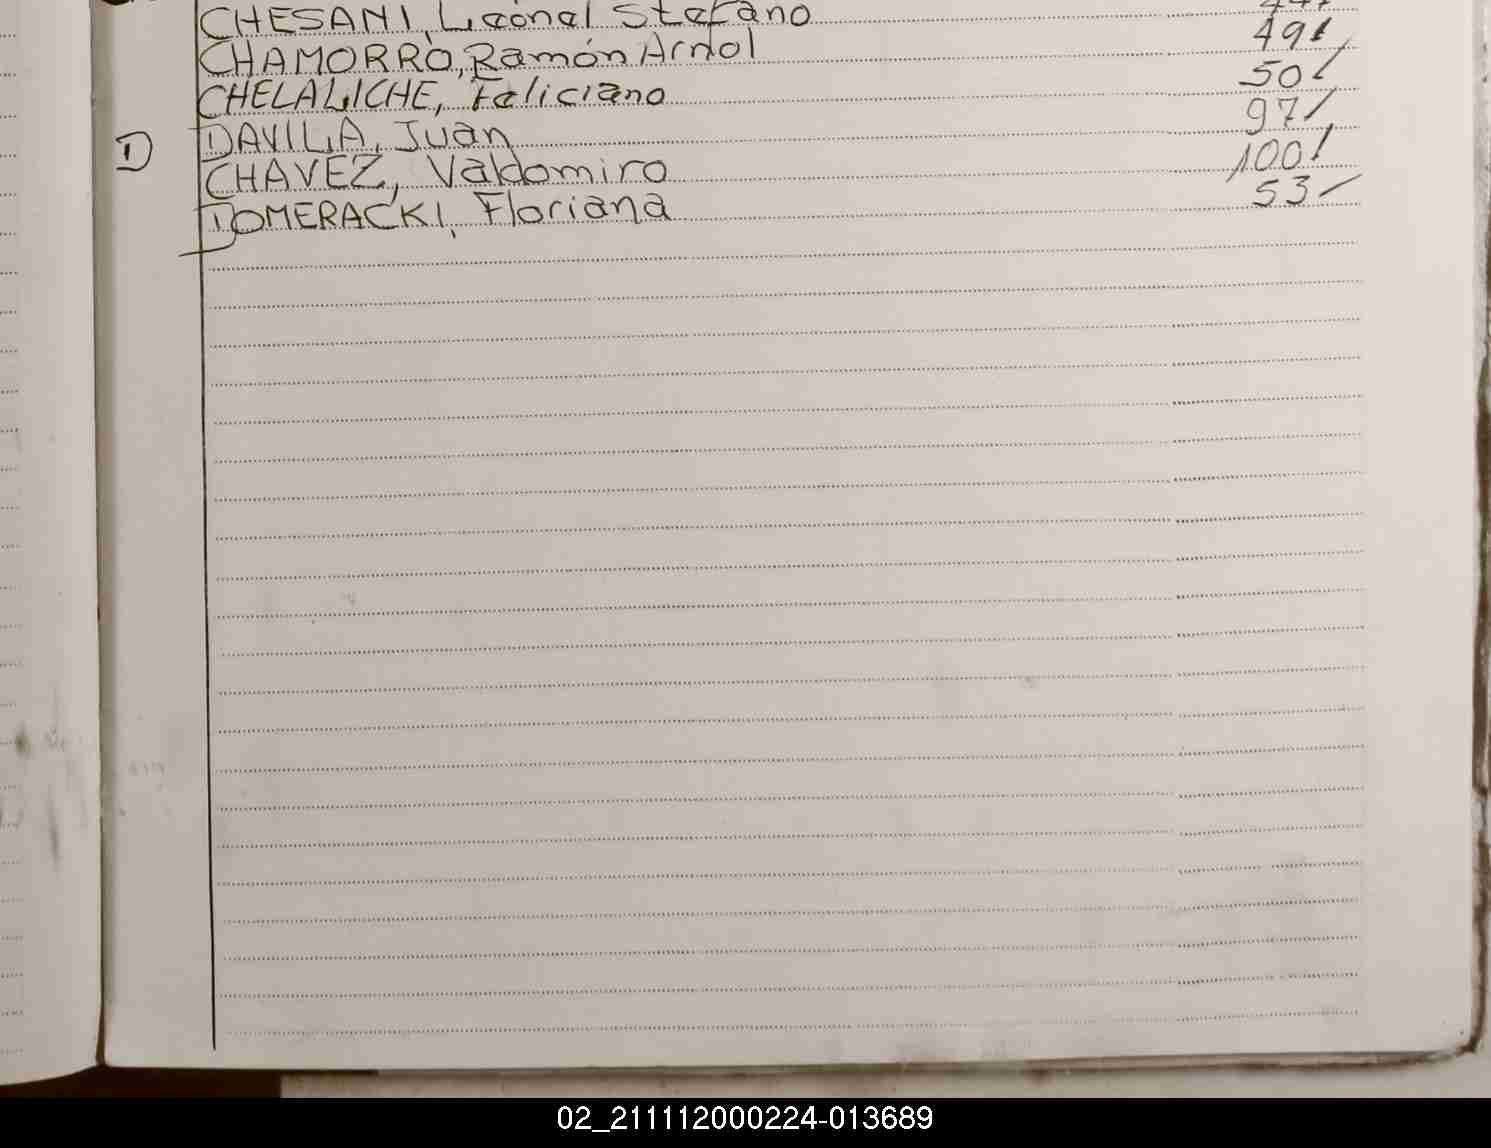 CHESANI, Leonel Stefano
CHAMORRO, Ramón Arnol 49/
CHELALICHE, Feliciano 50/
D DAVILA, Juan 97/
CHAVEZ, Valdomiro 100/
DOMERACKI, Floriana 53/
02_211112000224-013689